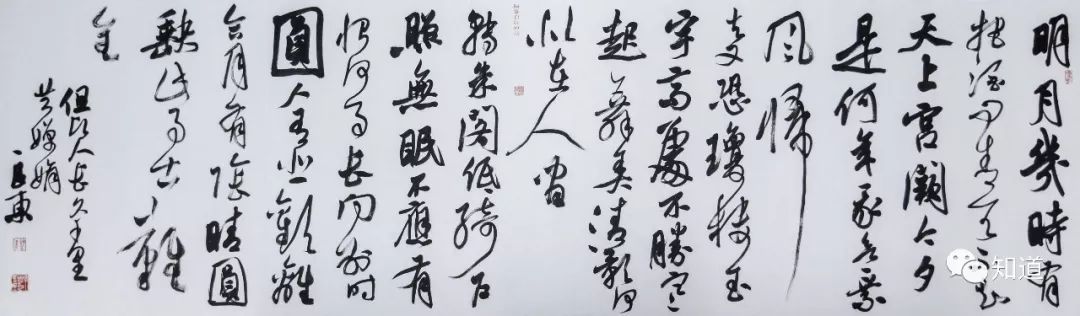 明月幾時有
把酒问青天不知
天上宫闕今夕
是何年我欲乘
风歸
又恐瓊楼玉
宇高處不勝寒
起舞弄清影何
似在人间
转朱閣低绮户
照無眠不應有
恨何事長向别时
圓人有悲歡離
合月有陰晴圓
缺此事古難
全
但願人長久千里
共嬋娟
知道